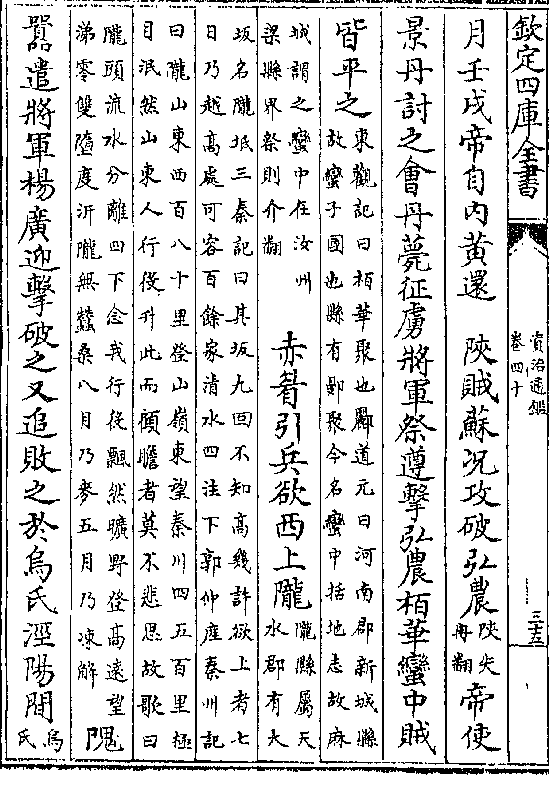 欽定四庫全書
資治通鑑
卷四十
三十五
月壬戌帝自内黄還　陜賊蘇况攻破弘農陜失冉翻帝使
景丹討之會丹薨征虜將軍祭遵擊弘農栢華蠻中賊
皆平之東觀記曰栢華聚也酈道元曰河南郡新城縣故蠻子國也縣有鄤聚今名蠻中括地志故麻
城謂之蠻中在汝州梁縣界祭則介翻　赤睂引兵欲西上隴隴縣屬天水郡有大
坂名隴坻三秦記曰其坂九回不知高幾許欲上者七日乃越高處可容百餘家清水四注下郭仲産秦州記
曰隴山東西百八十里登山嶺東望秦川四五百里極目泯然山東人行役升此而顧瞻者莫不悲思故歌曰
隴頭流水分離四下念我行役飄然曠野登高遠望涕零雙墮度汧隴無蠶桑八月乃麥五月乃凍解　隗
囂遣將軍楊廣迎擊破之又追敗之於烏氏涇陽間烏氏